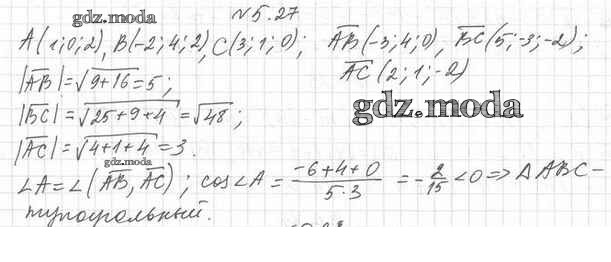 №5.27
gdz.moda
A(1;0;2), B(-2;4;2), C(3;1;0); AB(-3;4;0), BC(5;-3;-2);
|AB|=√9+16=5; AC(2;1;-2)
|BC|=√25+9+4=√48; gdz.moda
|AC|=√4+1+4=3.
gdz.moda
∠A=∠(AB,AC); cos∠A= -6+4+0 / 5·3 = -2/15 <0 => Δ ABC –
тупоугольный.